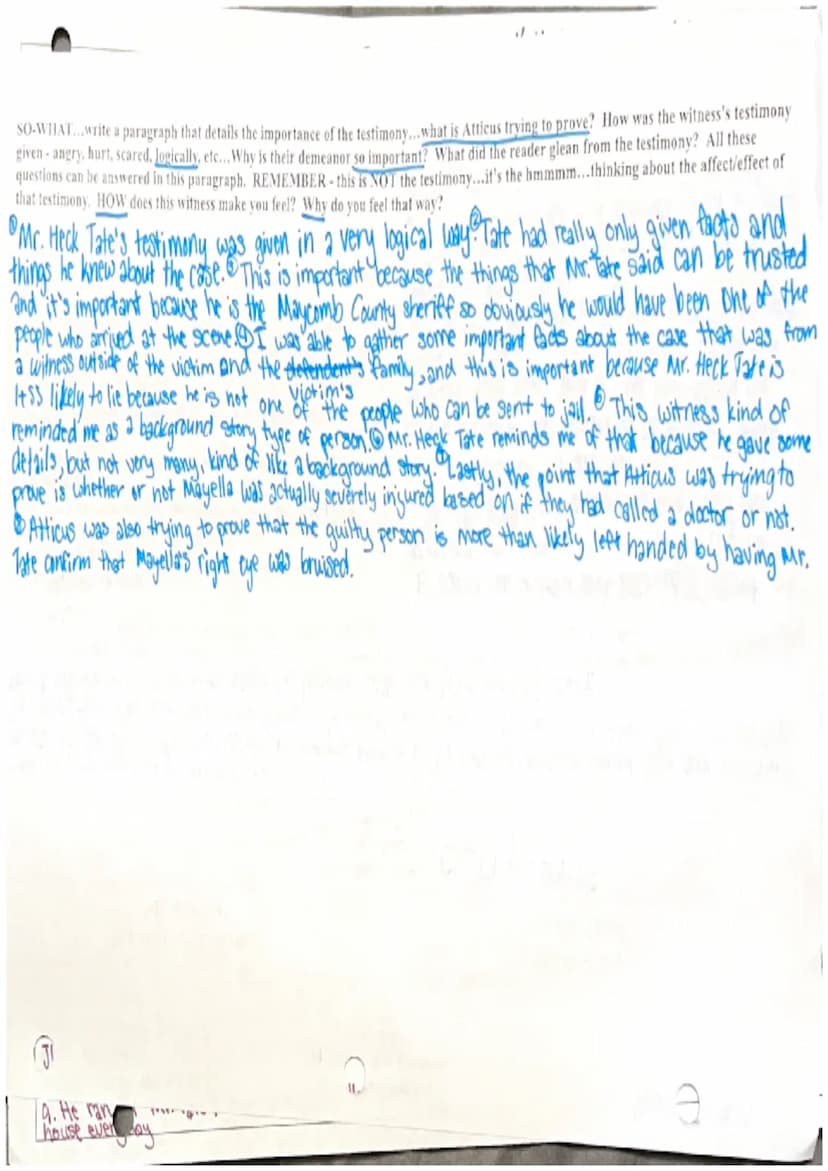 SO-WHAT...write a paragraph that details the importance of the testimony...what is Atticus trying to prove? How was the witness's testimony
given - angry, hurt, scared, logically, etc...Why is their demeanor so important? What did the reader glean from the testimony? All these
questions can be answered in this paragraph. REMEMBER - this is NOT the testimony...it's the hmmmm...thinking about the affect/effect of
that testimony. HOW does this witness make you feel? Why do you feel that way?
①Mr. Heck Tate's testimony was given in a very logical way.②Tate had really only given facts and
things he knew about the case.③This is important because the things that Mr. Tate said can be trusted
and it's important because he is the Maycomb County sheriff so obviously he would have been one of the
people who arrived at the scene.④I was able to gather some important facts about the case that was from
a witness outside of the victim and the defendent's family, and this is important because Mr. Heck Tate is
victim's
less likely to lie because he is not one of the people who can be sent to jail.⑤This witness kind of
reminded me as a background story type of person.⑥Mr. Heck Tate reminds me of that because he gave some
details, but not very many, kind of like a background story.⑦Lastly, the point that Atticus was trying to
prove is whether or not Mayella was actually severely injured based on if they had called a doctor or not.
⑧Atticus was also trying to prove that the guilty person is more than likely left handed by having Mr.
Tate confirm that Mayella's right eye was bruised.
J1
9. He ran
house every day